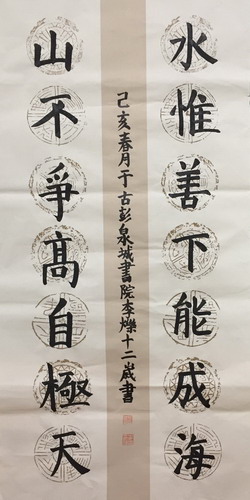 水惟善下能成海
山不爭高自極天
己亥春月于古彭泉城書院李爍十二歲書